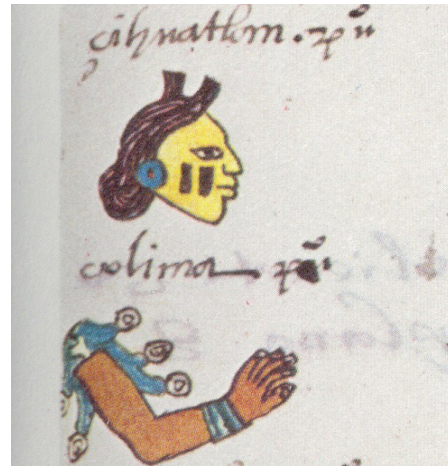 çihuatlan . puº
colima puº